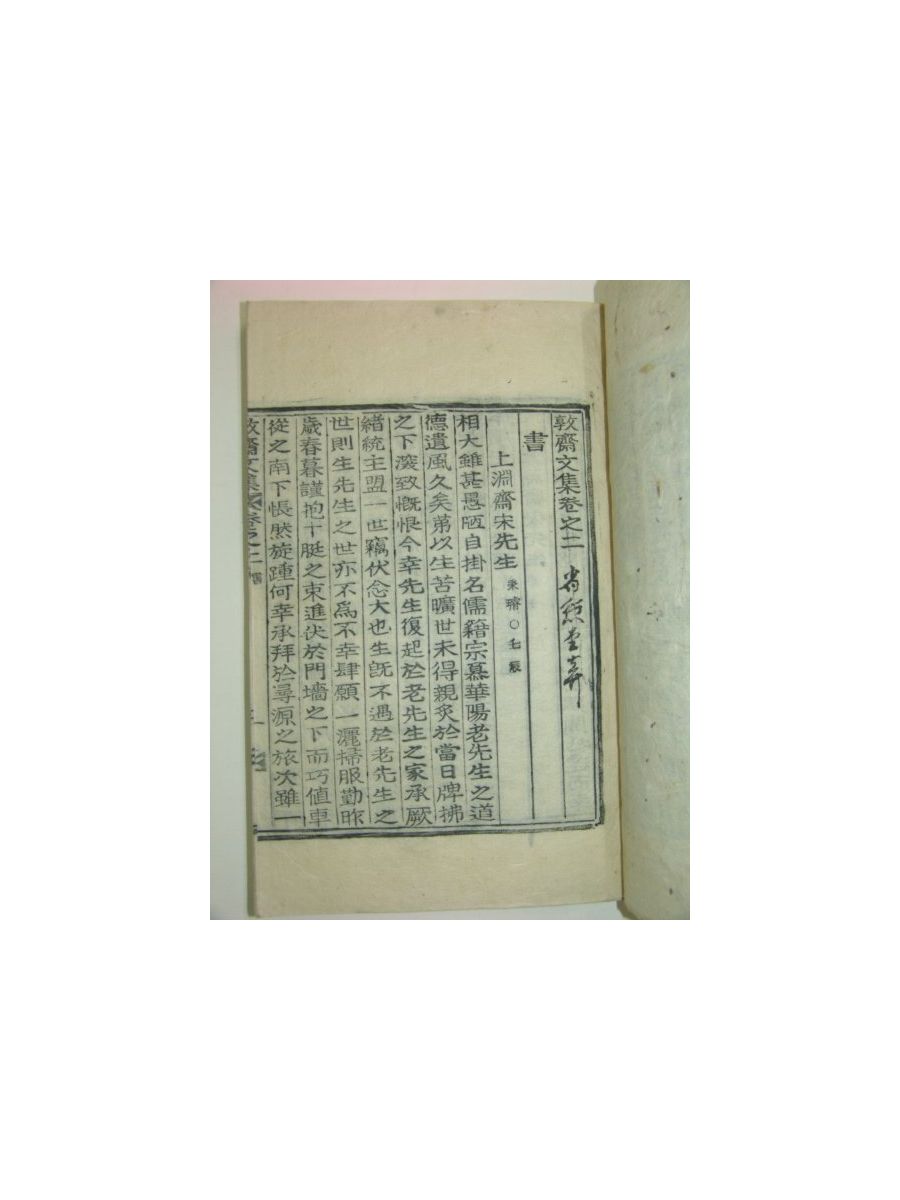 敦齋文集卷之二
書
上淵齋宋先生 秉璿○壬辰
相大雖甚愚陋自掛名儒籍宗慕華陽老先生之道
德遺風久矣第以生苦曠世未得親炙於當日牌拂
之下深致慨恨今幸先生復起於老先生之家承厥
緖統主盟一世竊伏念大也生旣不遇於老先生之
世則生先生之世亦不爲不幸肆願一灑掃服勤昨
歲春暮謹抱十艇之束進伏於門墻之下而巧値車
從之南下悵然旋踵何幸承拜於尋源之旅次雖一
敦齋文集 卷之二